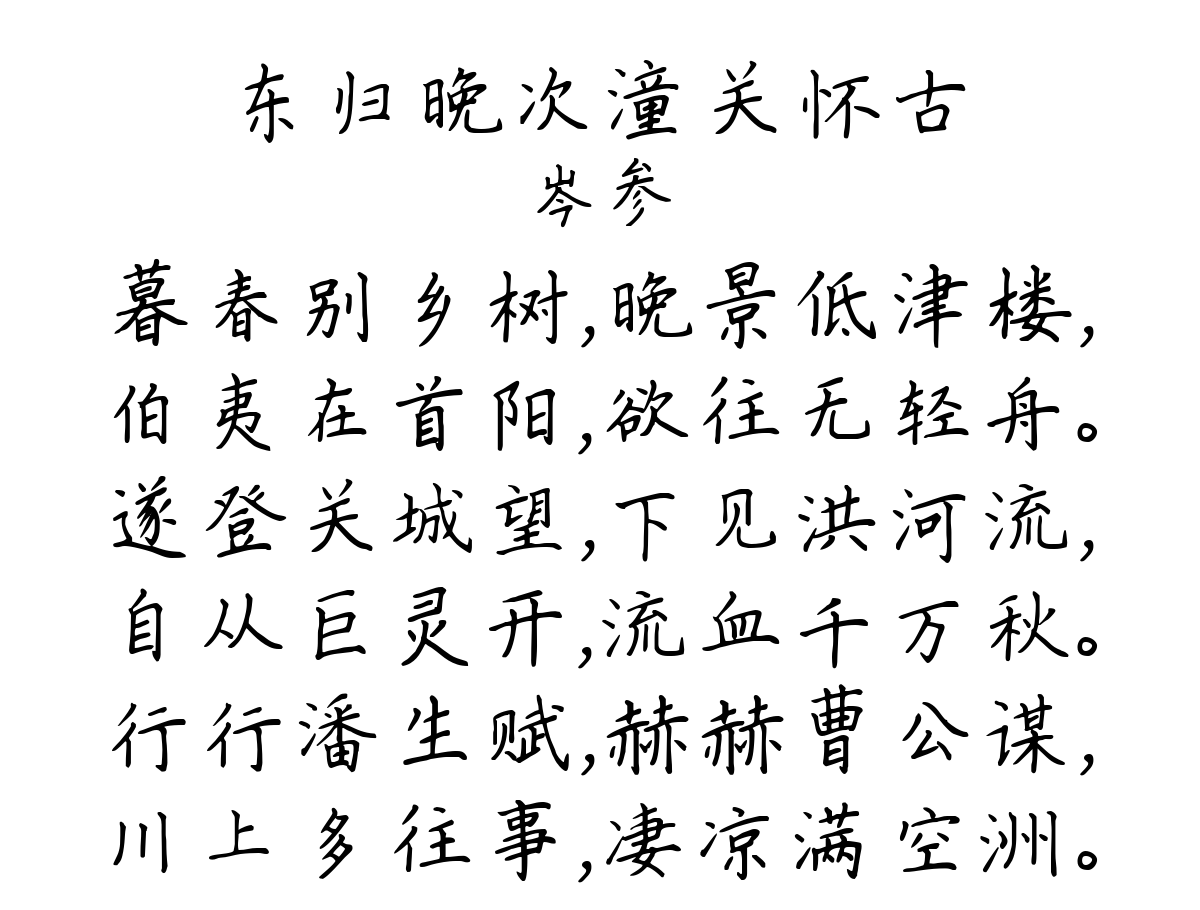 东归晚次潼关怀古
岑参
暮春别乡树,晚景低津楼,
伯夷在首阳,欲往无轻舟。
遂登关城望,下见洪河流,
自从巨灵开,流血千万秋。
行行潘生赋,赫赫曹公谋,
川上多往事,凄凉满空洲。